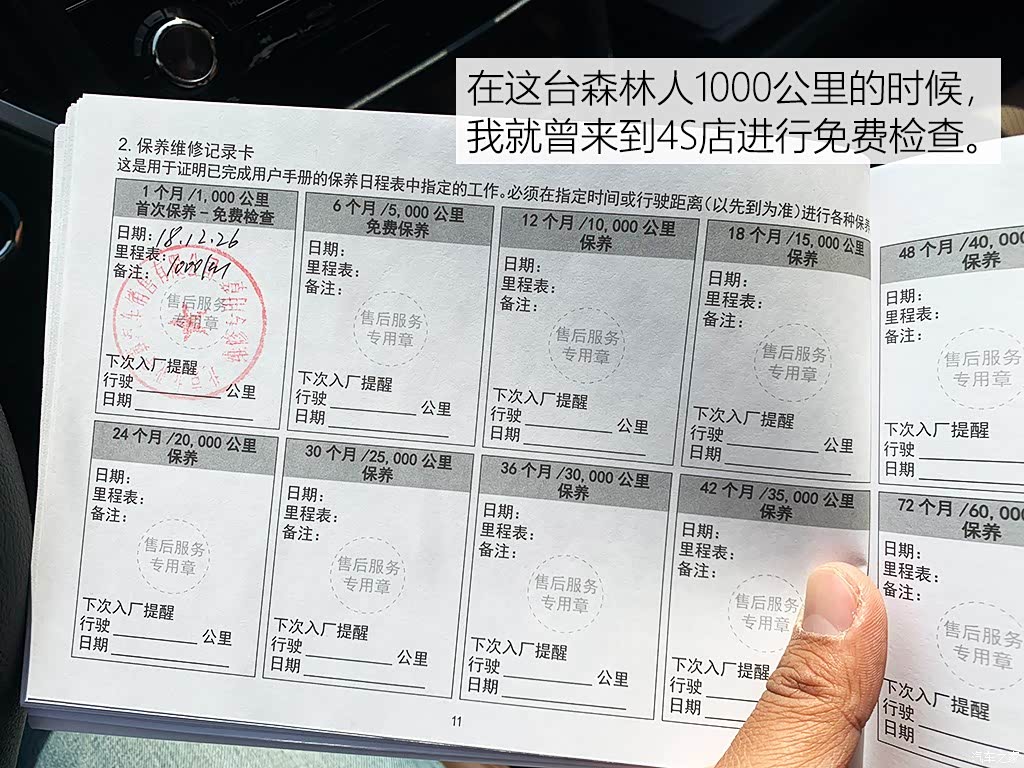 在这台森林人1000公里的时候，
我就曾来到4S店进行免费检查。
2. 保养维修记录卡
这是用于证明已完成用户手册的保养日程表中指定的工作。必须在指定时间或行驶距离（以先到为准）进行各种保养
1 个月 /1, 000 公里
首次保养 – 免费检查
日期：18.12.26
里程表：
备注：
售后服务
专用章
下次入厂提醒
行驶 公里
日期
6 个月 /5, 000 公里
免费保养
日期：
里程表：
备注：
售后服务
专用章
下次入厂提醒
行驶 公里
日期
12 个月 /10, 000 公里
保养
日期：
里程表：
备注：
售后服务
专用章
下次入厂提醒
行驶 公里
日期
18 个月 /15, 000 公里
保养
日期：
里程表：
备注：
售后服务
专用章
下次入厂提醒
行驶 公里
日期
48 个月 /40, 00
保养
日期：
里程表：
备注：
售后服务
专用章
下次入厂提醒
行驶
日期
24 个月 /20, 000 公里
保养
日期：
里程表：
备注：
售后服务
专用章
下次入厂提醒
行驶 公里
日期
30 个月 /25, 000 公里
保养
日期：
里程表：
备注：
售后服务
专用章
下次入厂提醒
行驶 公里
日期
36 个月 /30, 000 公里
保养
日期：
里程表：
备注：
售后服务
专用章
下次入厂提醒
行驶 公里
日期
42 个月 /35, 000 公里
保养
日期：
里程表：
备注：
售后服务
专用章
下次入厂提醒
行驶
日期
72 个月 /60, 00
保养
日期：
里程表：
备注：
售后服务
专用章
下次入厂提醒
行驶
日期
11
汽车之家